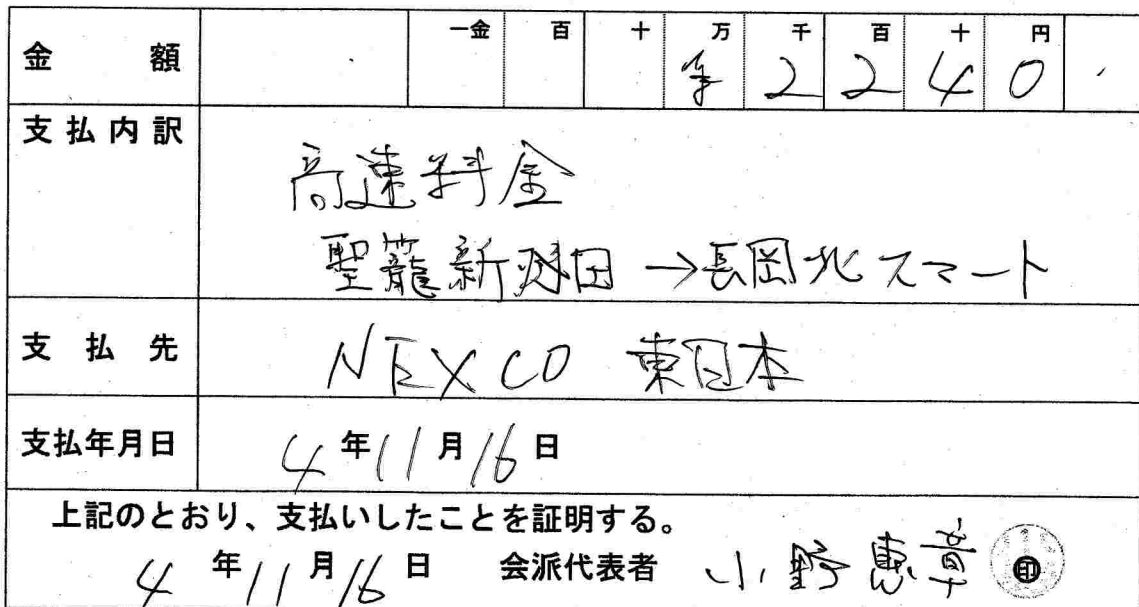 一金 百 十 万 千 百 十 円
金額 ¥ 2 2 4 0
支払内訳
高速料金
聖籠新発田→長岡北スマート
支払先 NEXCO 東日本
支払年月日 4年11月16日
上記のとおり、支払いしたことを証明する。
4年11月16日 会派代表者 小野 印